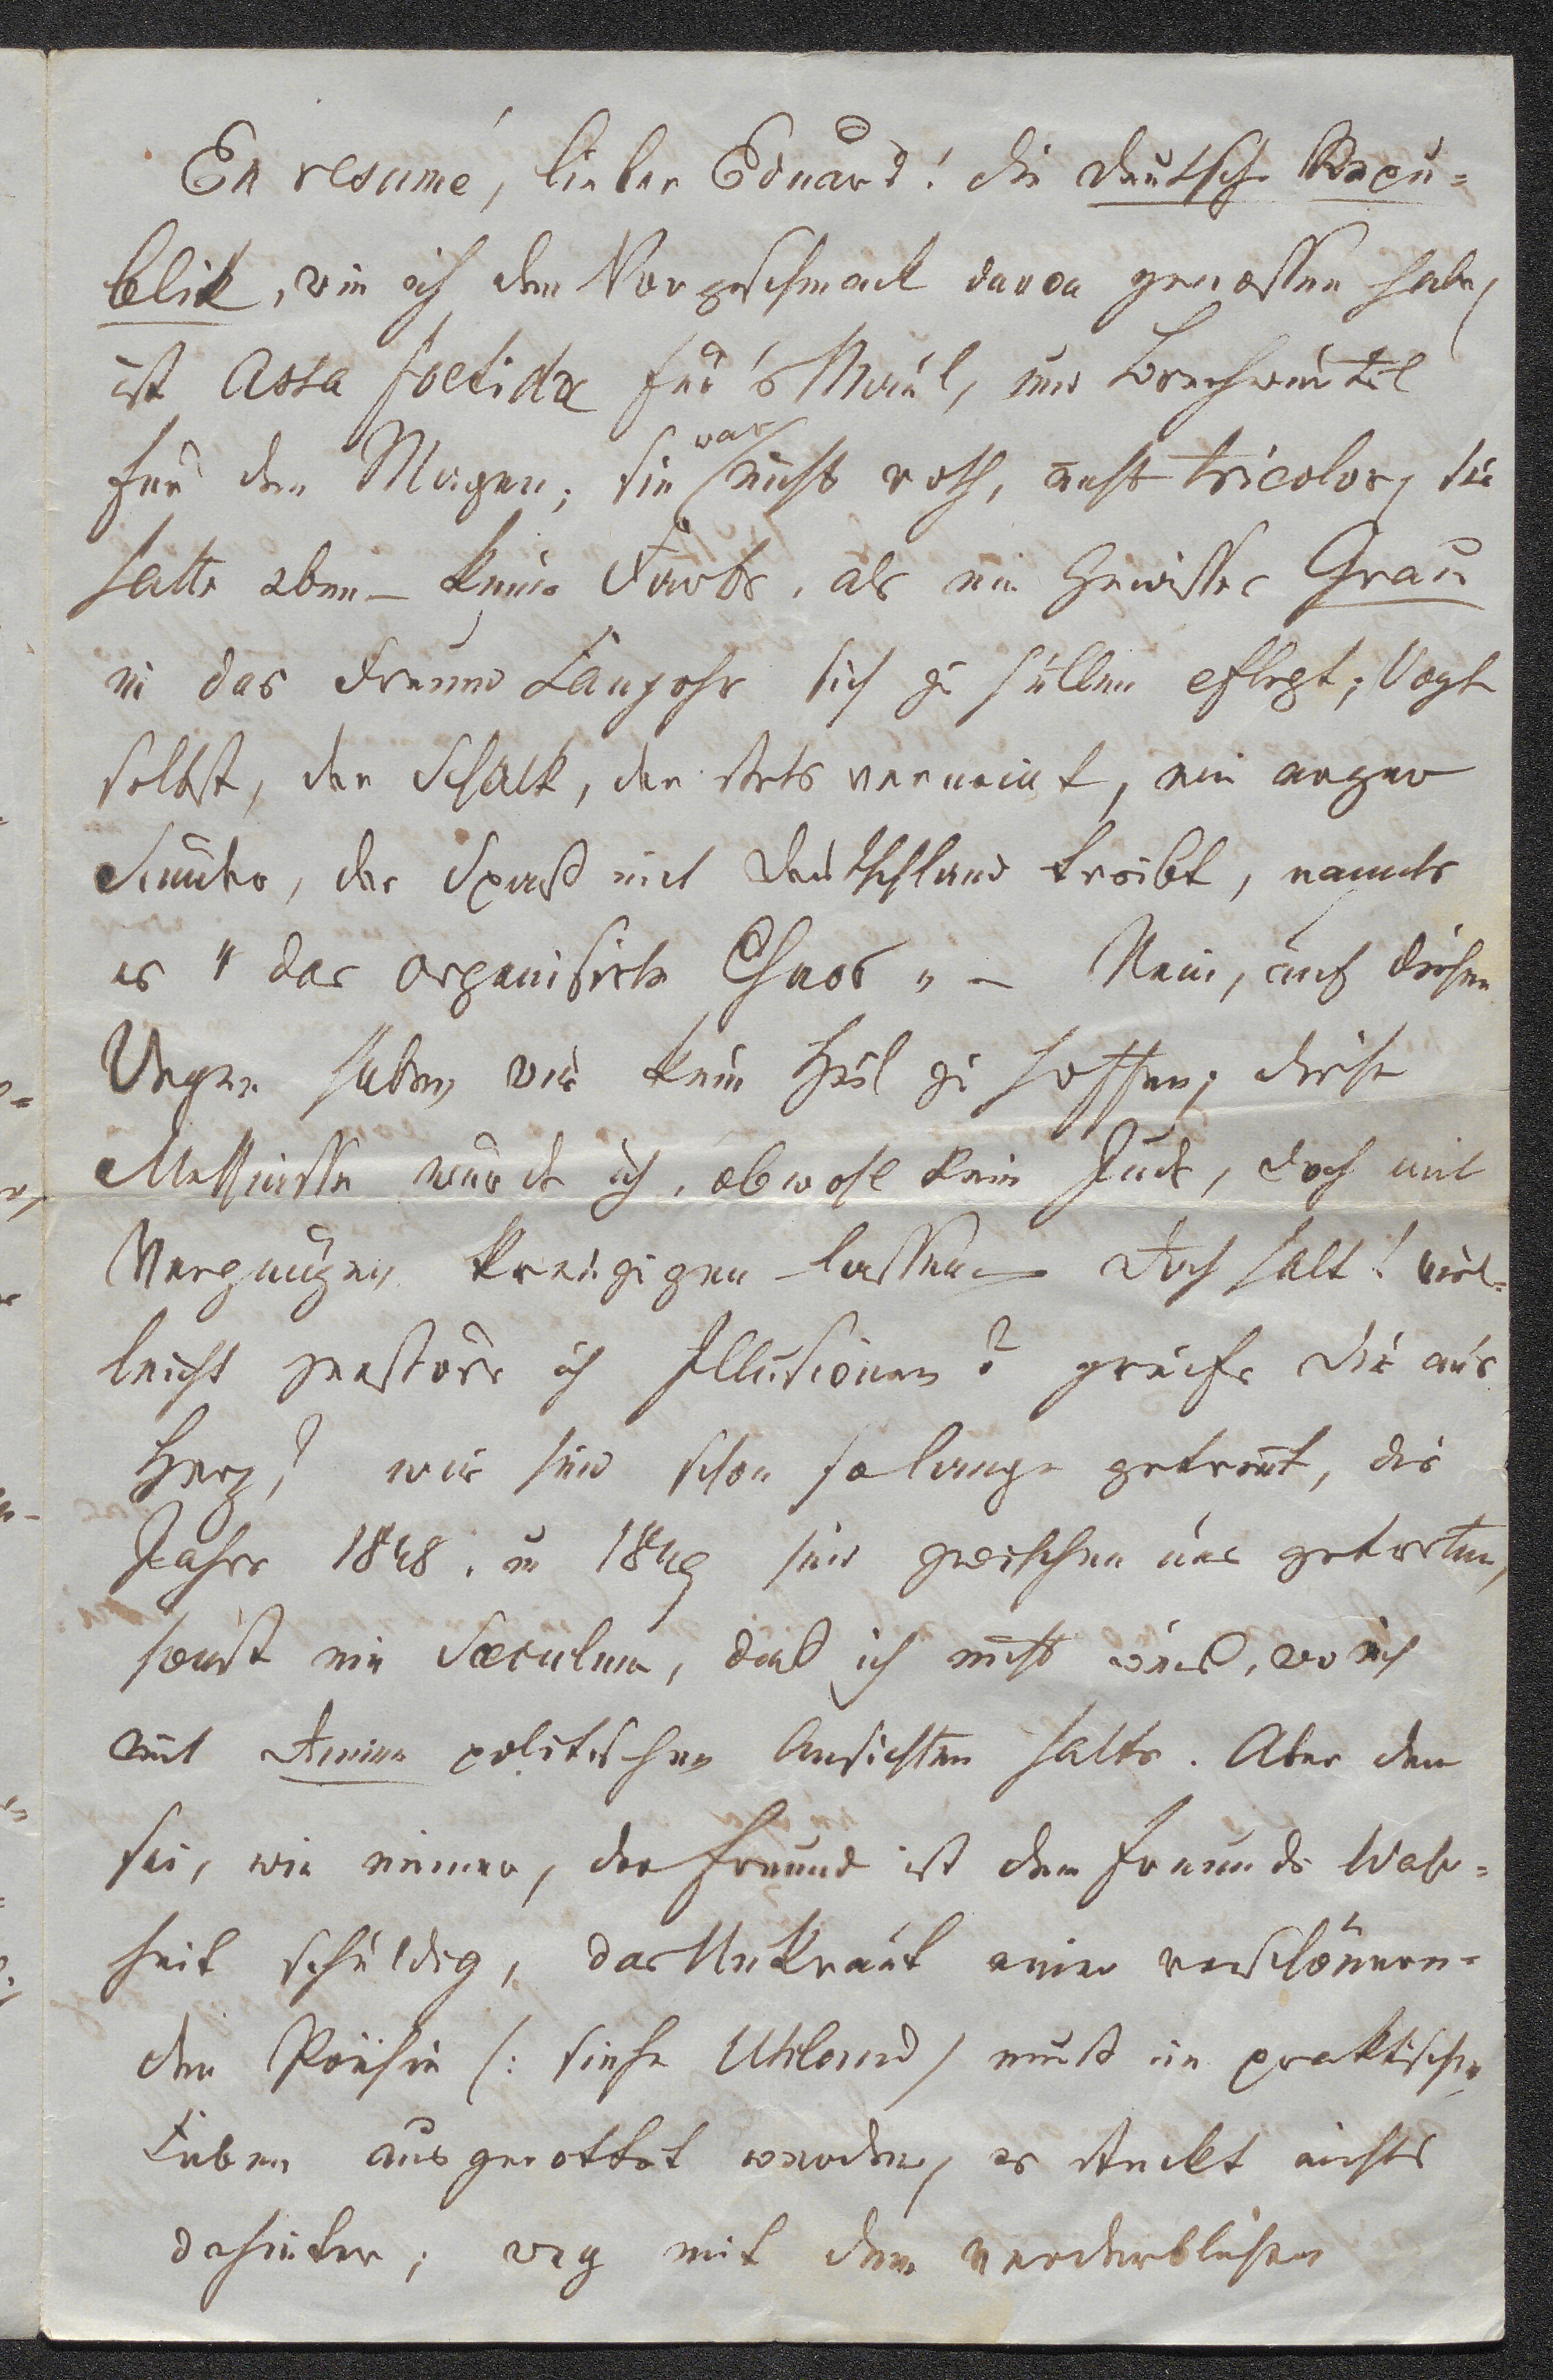 En resumé, lieber Eduard! die deutsche Repu=
blik, wie ich den Vorgeschmack davon genossen habe,
ist Assa foetida für's Maul, und Brechmittel
für den Magen; sie war nicht roth, nicht tricolor, sie
hatte eben – keine Farbe, als ein gewisses Grau
in das Freund Langohr sich zu hüllen pflegt; Vogt
selbst, der Schalk, der stets verneint, ein arger
Sünder, der Spaß mit Deutschland treibt, nannte
es "das organisirte Chaos" – Nein, auf diesen
Wegen haben wir kein Heil zu hoffen; diese
Messiasse würde ich, obwohl kein Jude, doch mit
Vergnügen kreuzigen lassen – Doch halt! viel=
leicht zerstöre ich Illusionen? greife Dir an's
Herz! wir sind schon so lange getrennt, die
Jahre 1848. u 1849 sind zwischen uns getreten,
sonst ein Saeculum, daß ich nicht weiß, wo ich
mit Deinen politischen Ansichten halte. Aber dem
sei, wie immer, der Freund ist dem Freunde Wahr=
heit schuldig, das Unkraut einer verschönern=
den Poësie (: siehe Uhland) muß im praktischen
Leben ausgerottet werden, es steckt nichts
dahinter; weg mit dem verderblichen